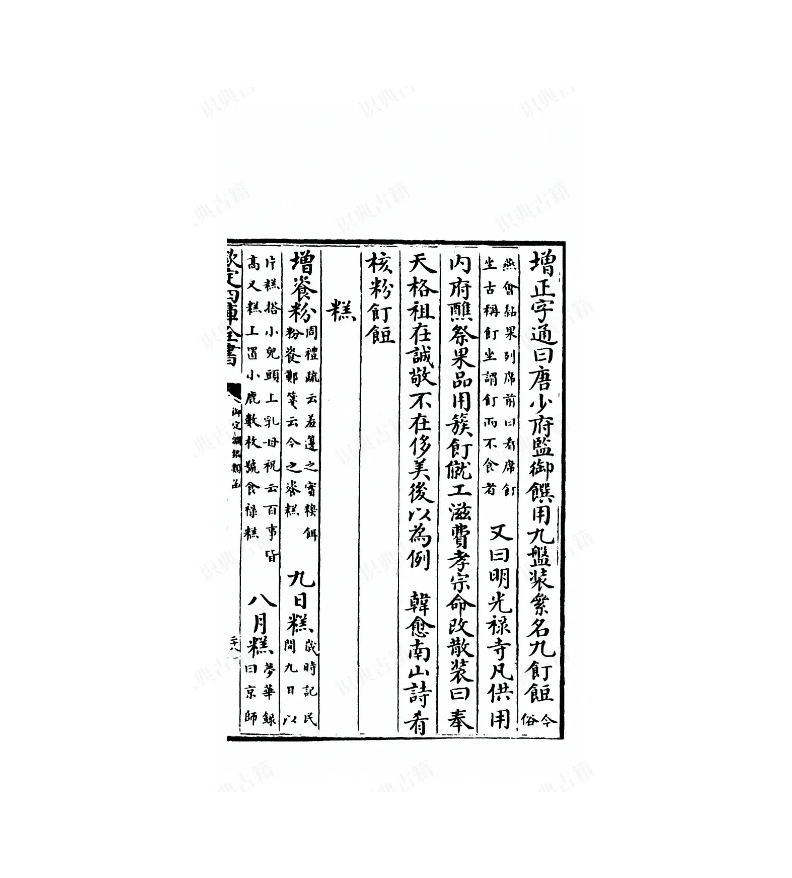 增正字通曰唐少府監御饌用九盤装絫名九飣餖今俗
燕會黏果列席前曰看席飣坐古稱飣坐謂飣而不食者 又曰明光禄寺凡供用
内府醮祭果品用簇飣僦工滋費孝宗命改散装曰奉
天格祖在誠敬不在侈美後以為例 韓愈南山詩肴
核粉飣餖
糕
增餈粉周禮疏云羞籩之實糗餌粉餈鄭箋云今之餈糕 九日糕歲時記民間九日以
片糕搭小兒頭上乳母祝云百事皆高又糕上置小鹿數枚號食禄糕 八月糕夢華録曰京師
欽定四庫全書
御定淵鑑類函
識典古籍